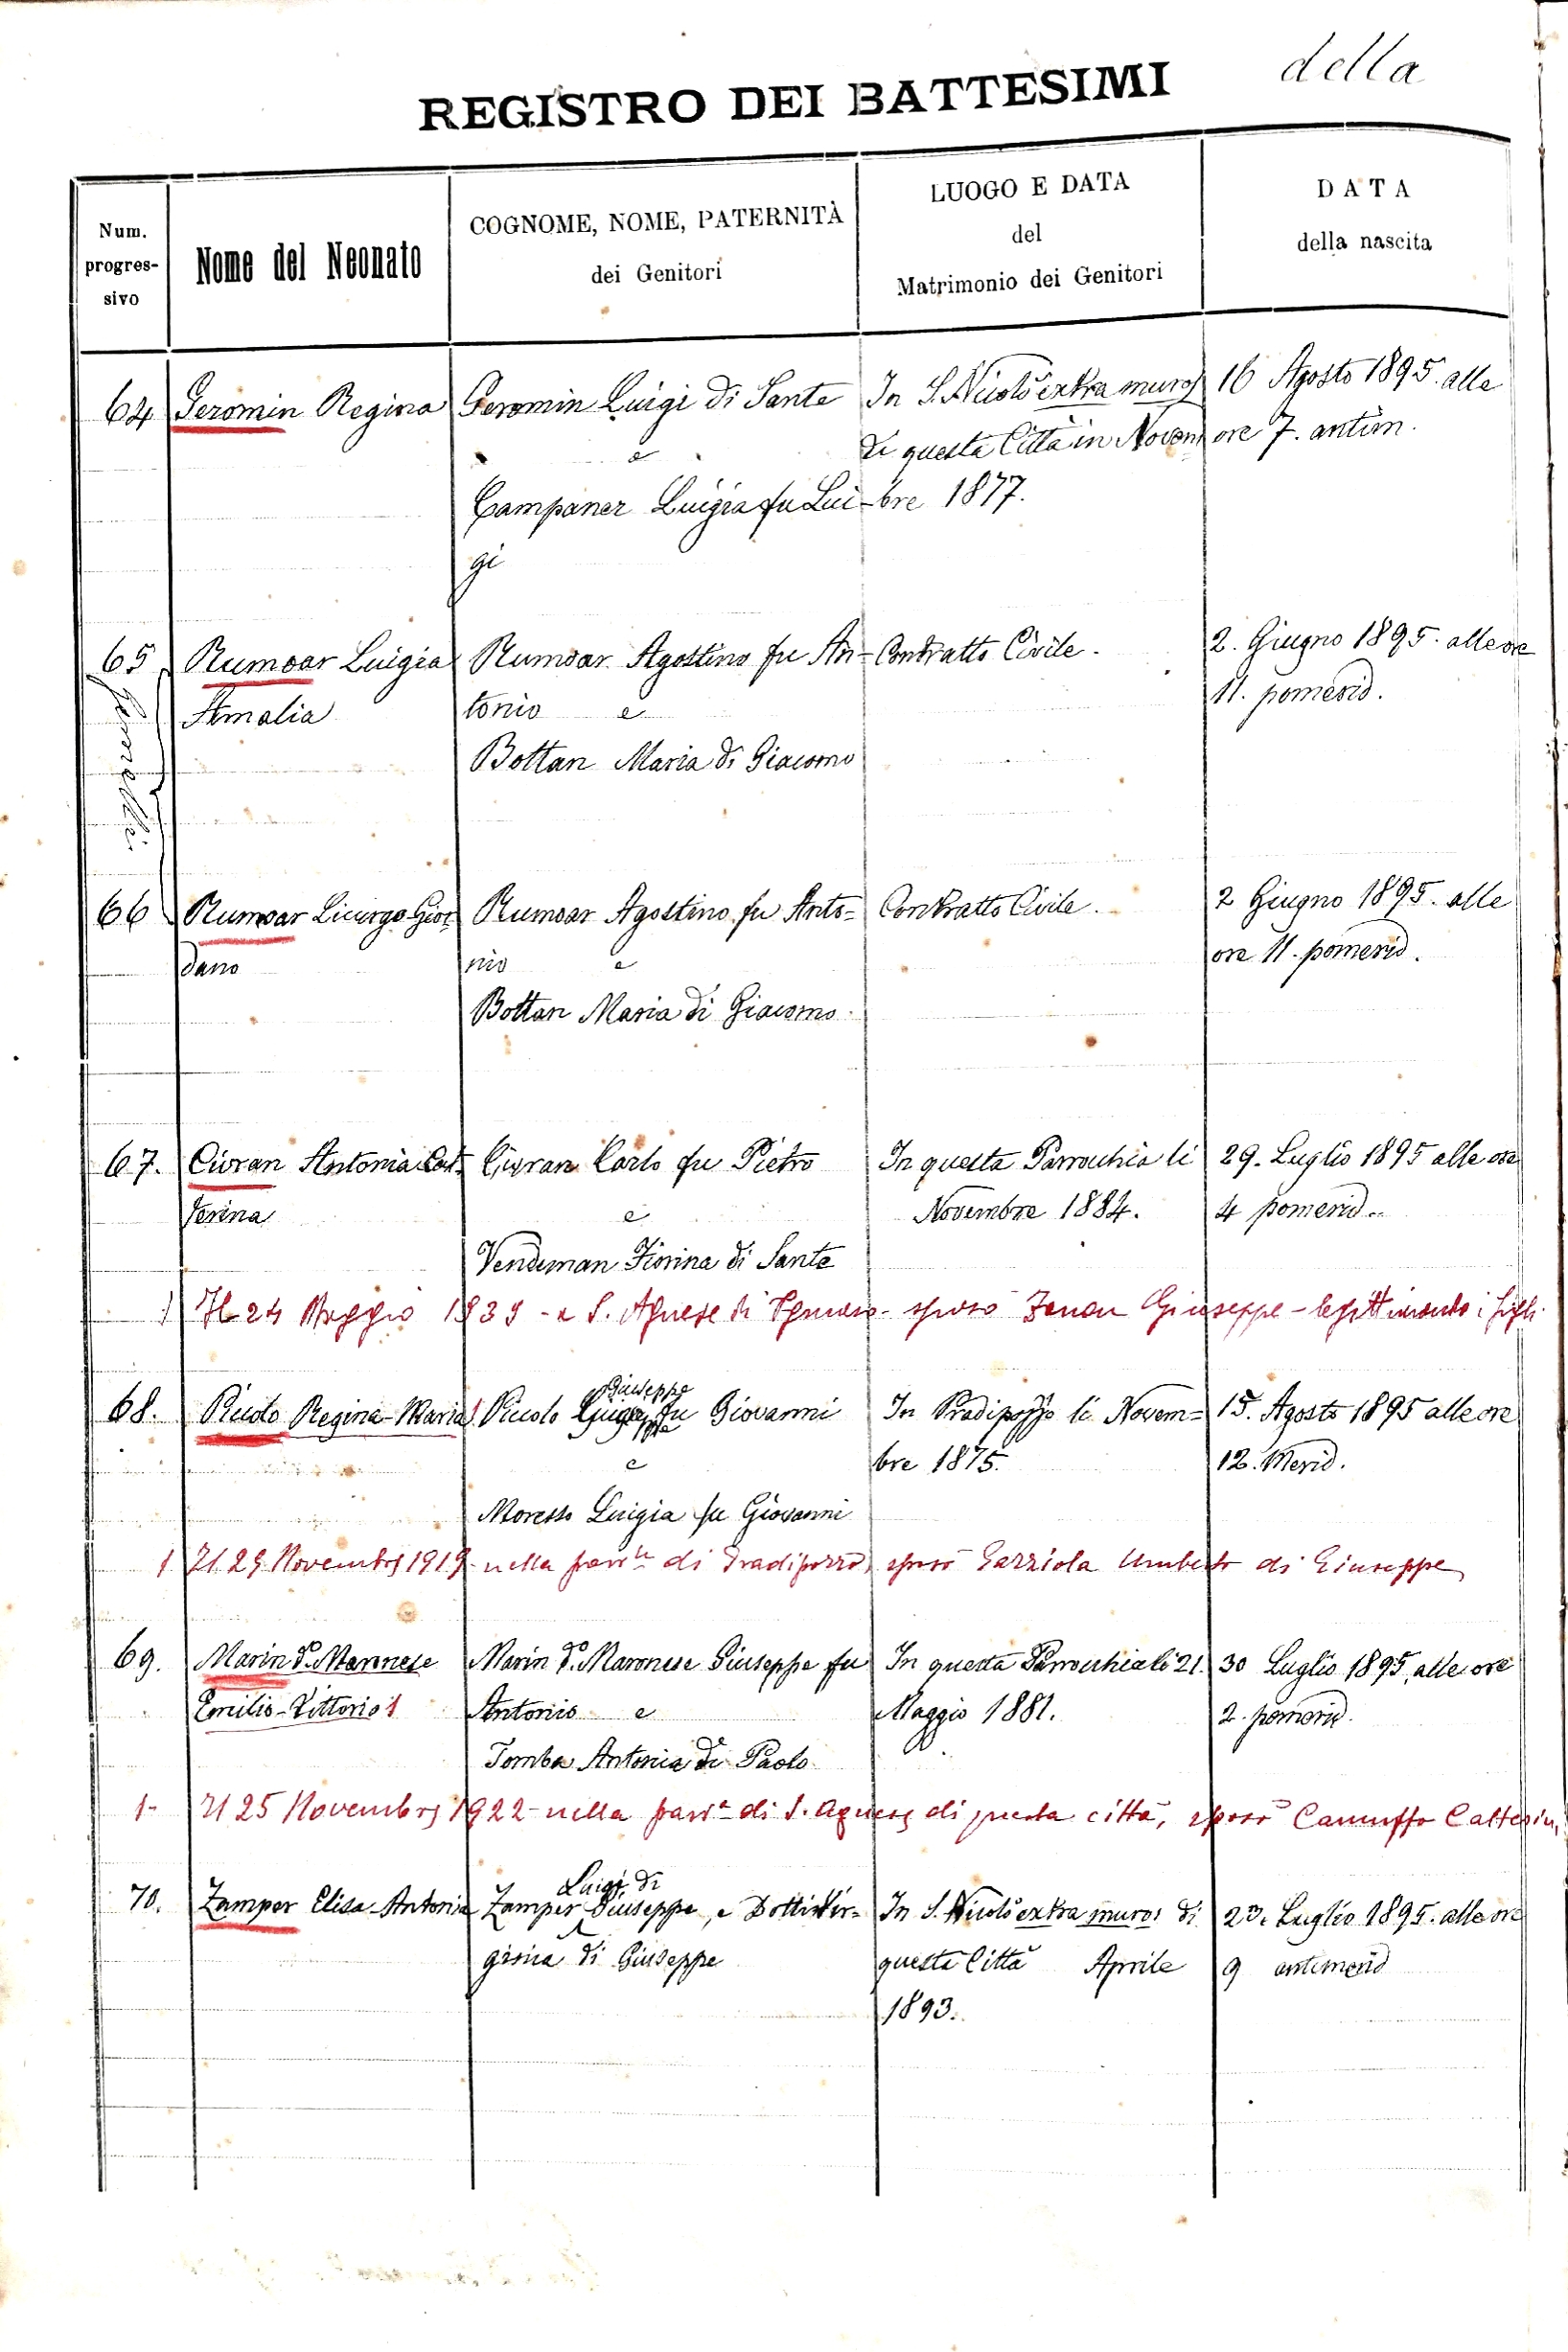 della
REGISTRO DEI BATTESIMI
Num.
progres-
sivo
Nome del Neonato
COGNOME, NOME, PATERNITÀ
dei Genitori
LUOGO E DATA
del
Matrimonio dei Genitori
DATA
della nascita
64 Geromin Regina
Geromin Luigi di Sante
e
Campaner Luigia fu Lui-
gi
In S. Nicolò extra muros
di questa Città in Novem
bre 1877.
16 Agosto 1895. alle
ore 7. antim.
65 Rumoar Luigia
Amalia
Rumoar Agostino fu An-
tonio e
Bottan Maria di Giacomo
Contratto Civile.
2. Giugno 1895. alle ore
11. pomerid.
66 Rumoar Licurgo Gior-
dano
Rumoar Agostino fu Anto-
nio e
Bottan Maria di Giacomo.
Contratto Civile.
2 Giugno 1895. alle
ore 11. pomerid.
67. Civran Antonia Cat-
terina
Civran Carlo fu Pietro
e
Vendeman Fiorina di Sante
In questa Parrochia li
Novembre 1884.
29. Luglio 1895 alle ore
4 pomerid.
1 Il 24 Maggio 1939 - a S. Agnese di - sposò Zanon Giuseppe - legittimando i figli.
68. Piccolo Regina-Maria 1
Giuseppe
Piccolo fu Giovanni
e
Moretto Luigia fu Giovanni
In Pradipozzo li Novem-
bre 1875.
15. Agosto 1895 alle ore
12. Merid.
1 Il 29 Novembre 1919 nella parr. di Pradipozzo, sposò Garziola Umberto di Giuseppe
69. Marin do Maronese
Emilio-Vittorio 1
Marin do Maronese Giuseppe fu
Antonio e
Tomba Antonia di Paolo.
In questa Parrochia li 21.
Maggio 1881.
30 Luglio 1895, alle ore
2. pomerid.
1- Il 25 Novembre 1922 - nella parra di S. Agnese di questa città, sposò Camuffo
70. Zamper Elisa-Antonia
Luigi di
Zamper Giuseppe, e Dotti Vir-
ginia di Giuseppe
In S. Nicolò extra muros di
questa Città Aprile
1893.
23. Luglio 1895. alle ore
9 antimerid